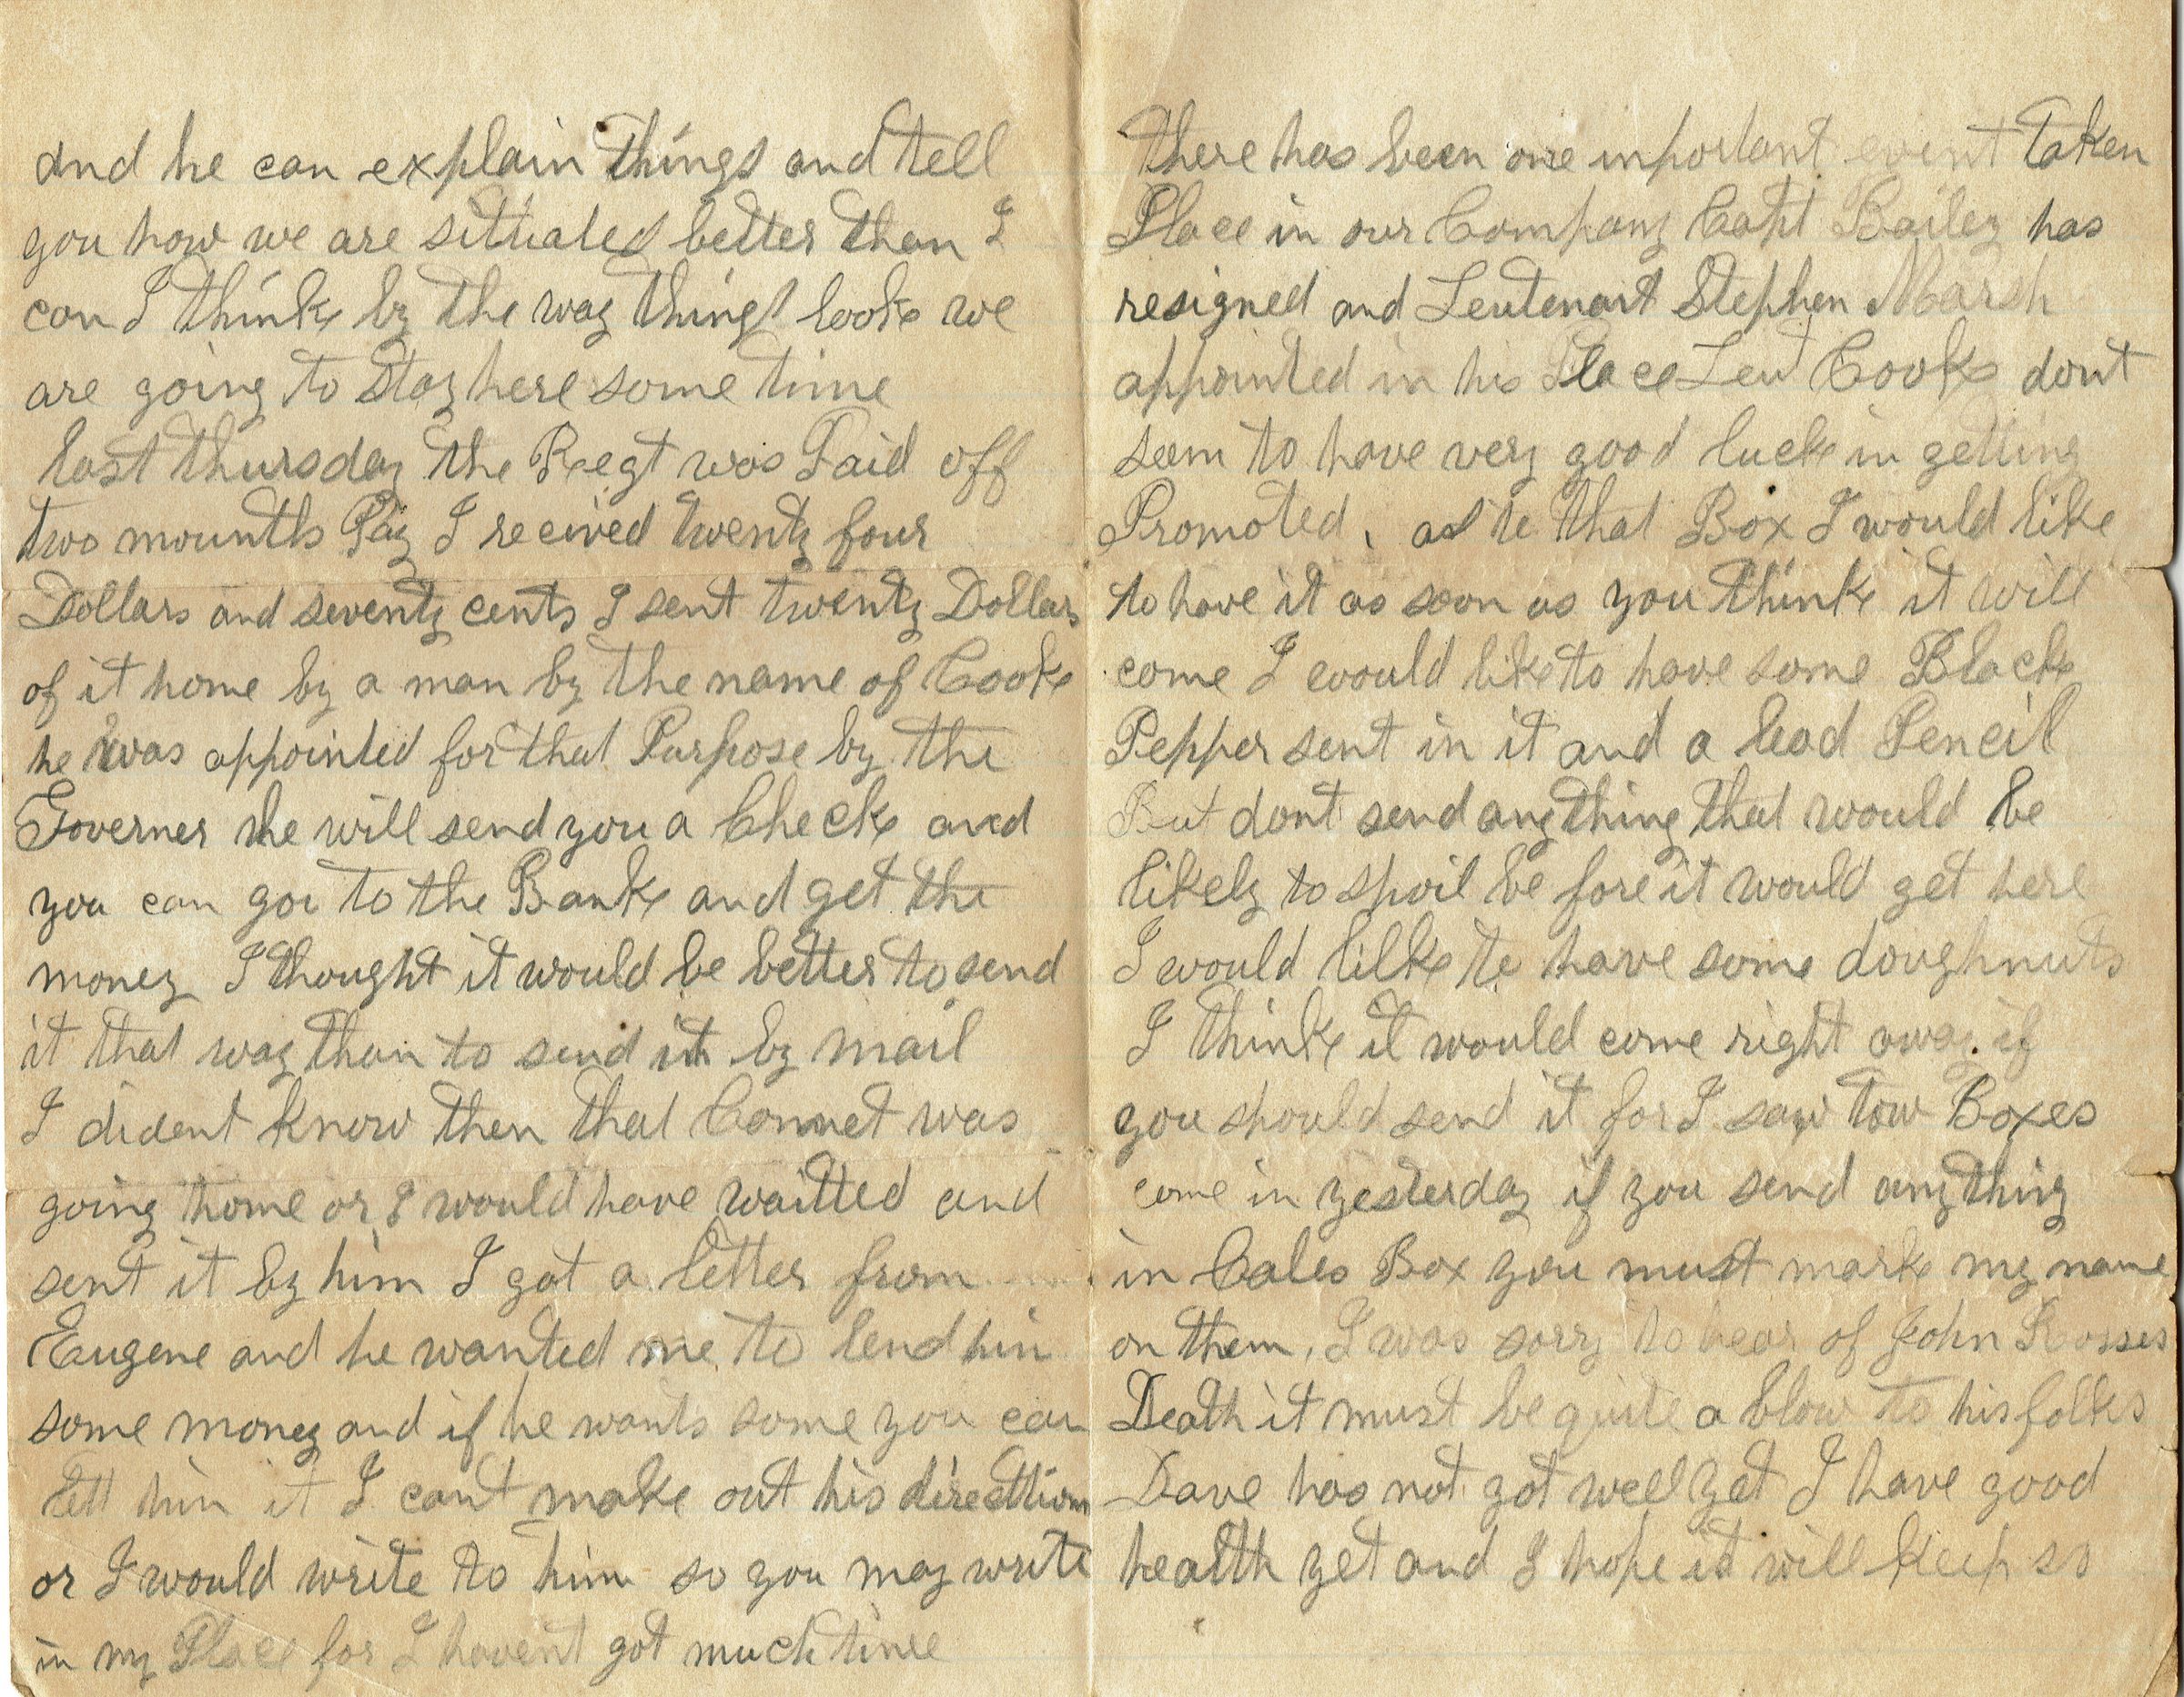 and he can explain things and tell
you how we are sittiated better than I
can I think by the way things looks we
are going to stay here some time
last thursday the Regt was Paid off
two mounths Pay I recived twenty four
Dollars and seventy cents I sent twenty Dollars
of it home by a man by the name of Cook
he was appointed for that Purpose by the
Governer he will send you a Check and
you can go to the Bank and get the
money I thought it would be better to send
it that way than to send it by mail
I dident know then that Connet was
going home or I would have waitted and
sent it by him I got a letter from
Eugene and he wanted me to lend him
some money and if he wants some you can
lett him it I cant make out his directtion
or I would write to him so you may write
in my Place for I havent got much time
there has been one inportant event taken
Place in our Company Capt Bailey has
resigned and Leutenant Stephen Marsh
appointed in his Place Leut Cook dont
seem to have very good luck in getting
Promoted, as to that Box I would like
to have it as soon as you think it will
come I would like to have some Black
Pepper sent in it and a lead Pencil
But dont send anything that would be
likely to spoil be fore it would get here
I would lilke to have some doughnuts
I think it would come right away if
you should send it for I saw tow Boxes
come in yesterday if you send anything
in Cales Box you must mark my name
on them, I was sorry to hear of John Rosses
Death it must be quite a blow to his folks
Dave has not got well yet I have good
health yet and I hope it will keep so